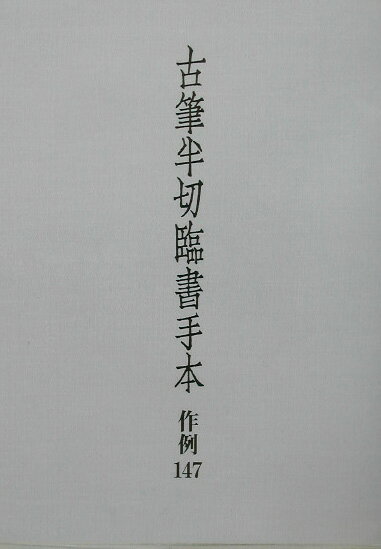 古筆半切臨書手本
作例
147